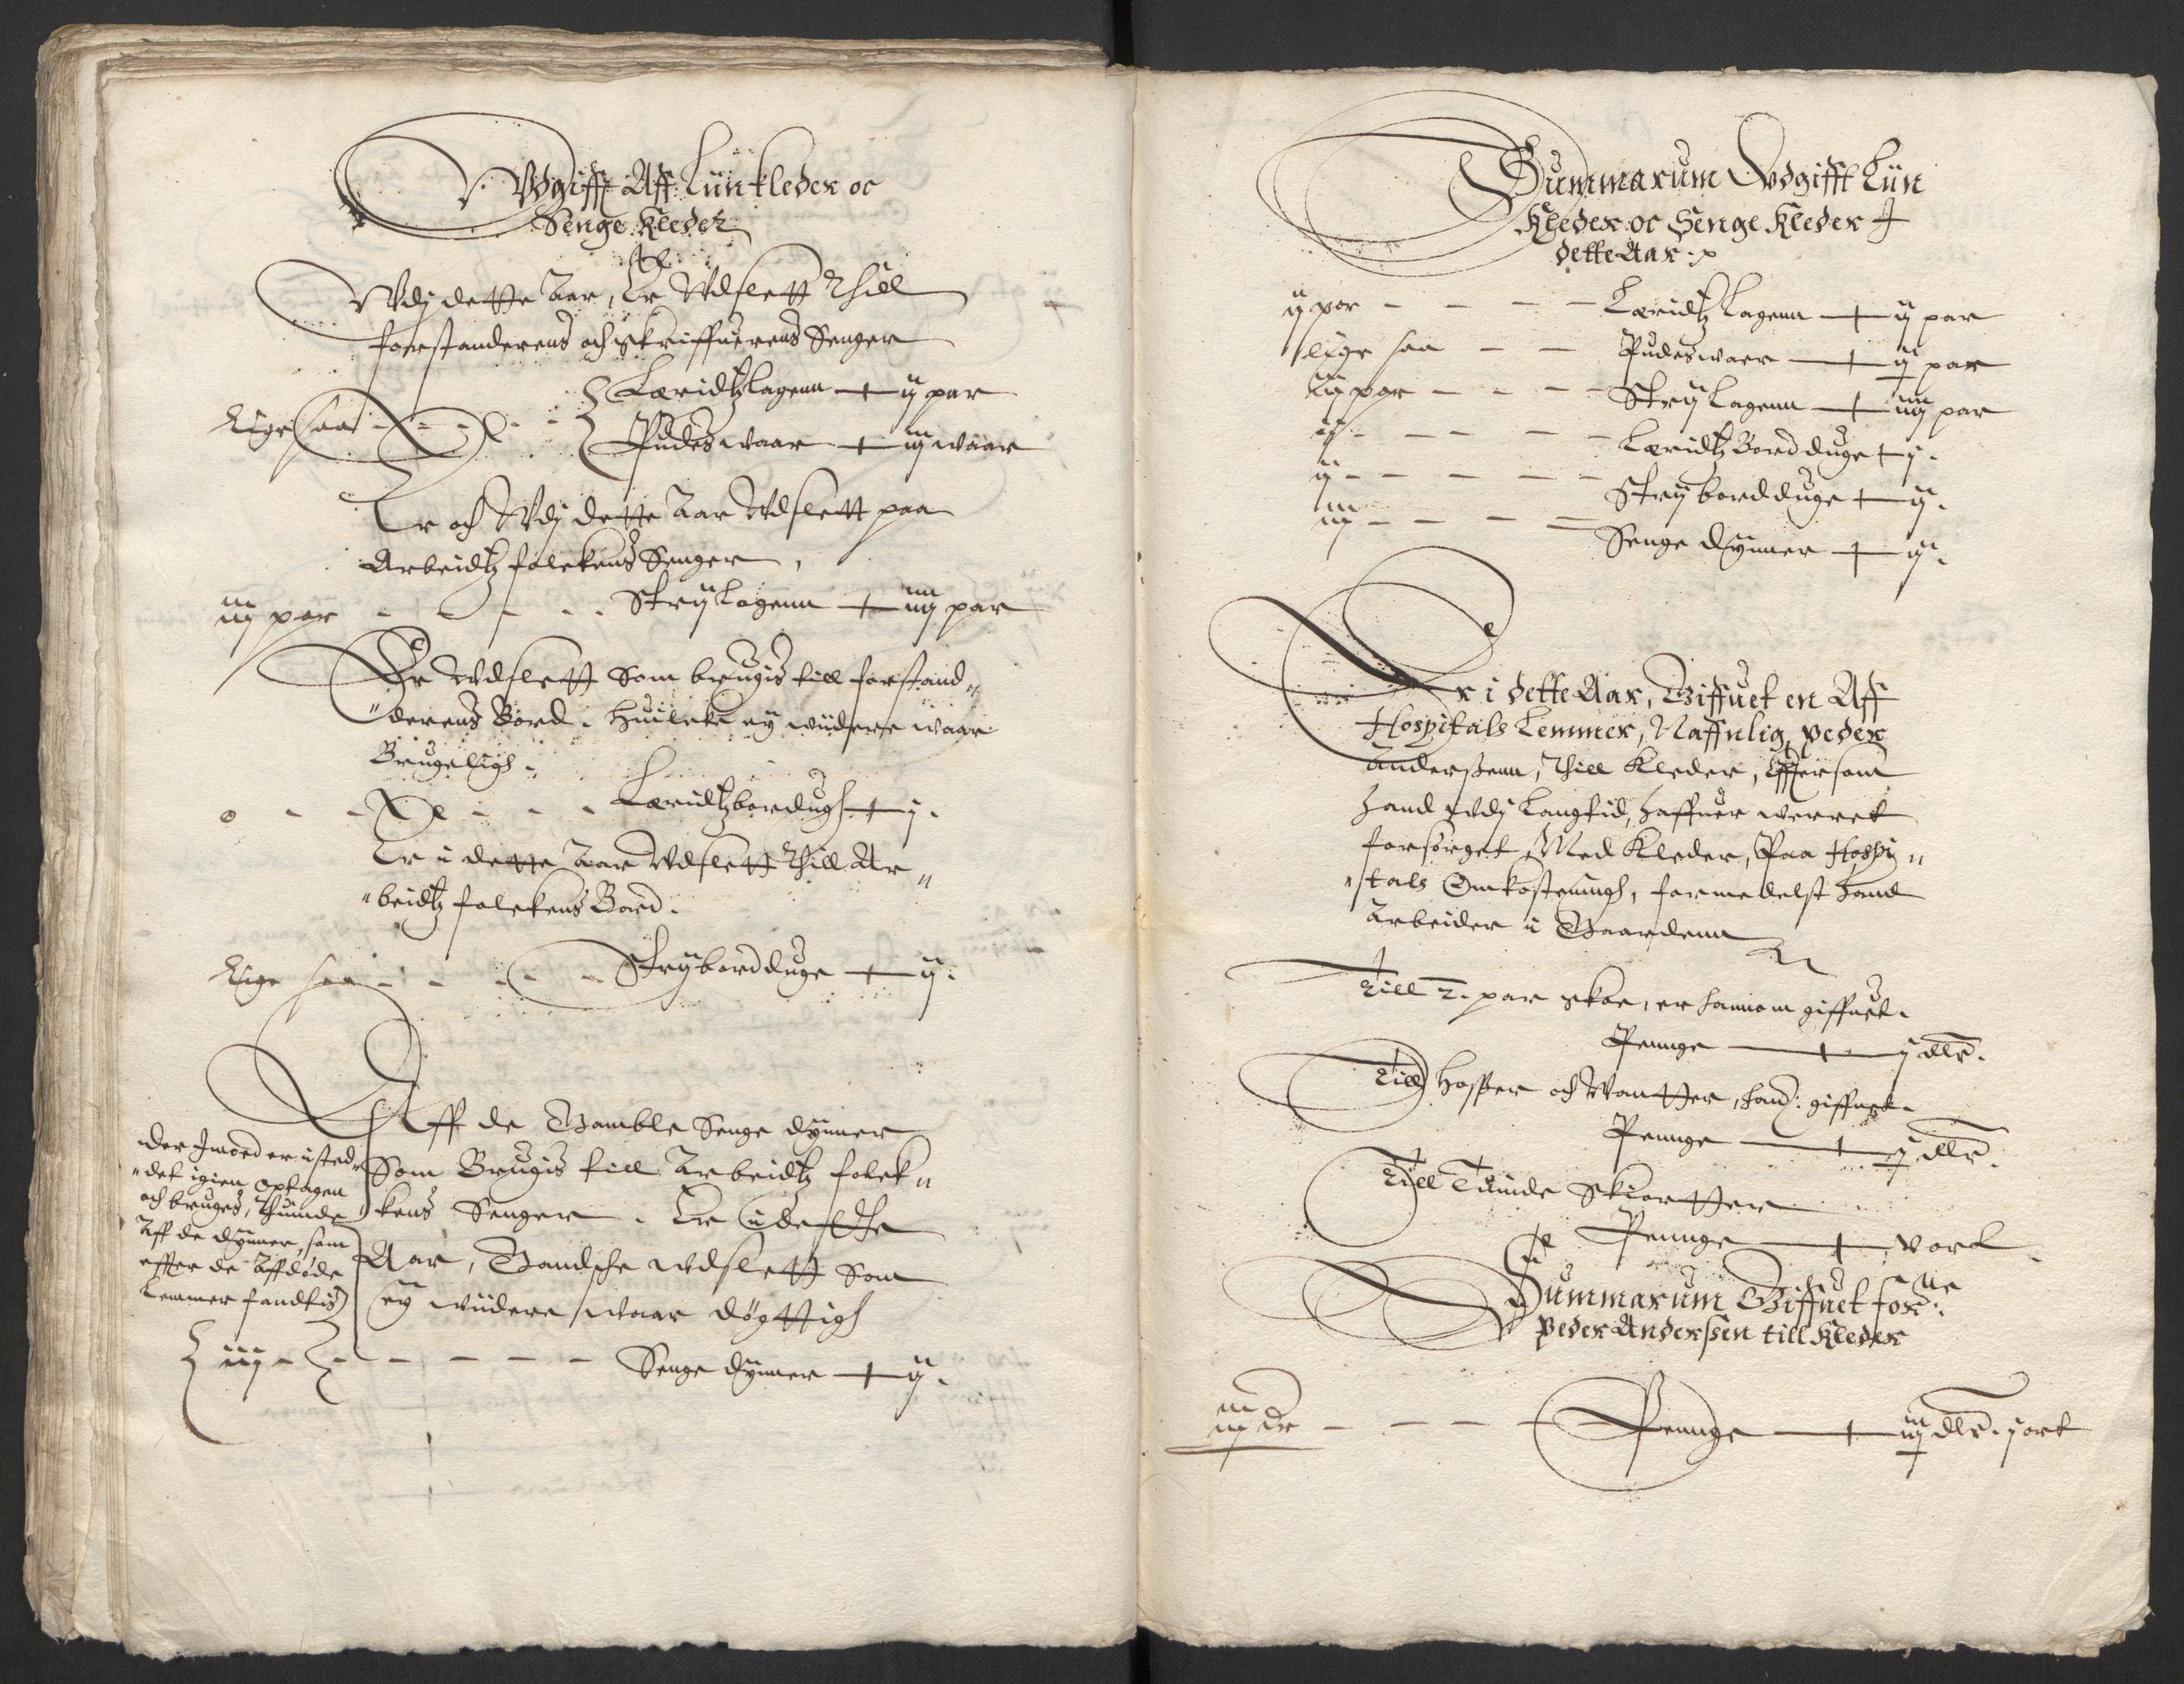 Vdgifft Aff Liinkleder oc
Senge Kleder
Vdj dette Aar, Er Vdslett Thill
forstanderens och Skriffuerens Senger
Læridtz lagenn + ij par
Lige saa - - - - Pudes waar + iiij waar
Er och Vdj dette Aar Vdslett paa
Arbeidtz folckens Senger,
iiij par - - - - Strij Lagenn + iiij par
Er Vdslett Som brugis till forstand„
„derens Bord. Huilcke ey wiidere waar
Brugeligh.
0 - - - - - Lærridtzbordugh + j.
Er i dette Aar Vdslett Thill Ar„
„beidtz folckens Bord.
Lige saa - - - - - Strijbordduge + ij.
Aff de Gamble Senge dynner
Som Brugis till Arbeidtz folck„
kens Senger. Er i dette
Aar, Gandsche vdslett Som
ey wiidere waar døgttigh
der Imoed er i sted„
„det igien optagen
och bruges, Thuinde
Aff de dynner, som
effter de Affdøde
Lemmer fandtis
iij - - - - - - Senge dynner + ij.
Summarum Vdgifft Liin
Kleder oc Senge Kleder I
dette Aar
ij par - - - - Læridtz Lagenn + ij par
lige saa - - Pudeswaer + ij par
iiij par - - - Strij Lagenn + iiij par
- - - - Læridtz Bordduge + j.
ij - - - - - Strij bordduge + ij.
iij - - - - Senge dynner + ij.
Er i dette Aar, Giffuet en Aff
Hospitals Lemmer, Naffnlig, Peder
Anderßenn, Thill Kleder, Efftersom
hand vdj Langtid, haffuer werret
forsørget Med Kleder, Paa Hospi„
„tals Omkostningh, formedelst hand
Arbeider i Gaardenn
Till 2. par skoe, er hannom giffuet.
Penge + j dlr.
Till Hoßer och Wantter, hand: giffuet.
Penge + j dlr.
Till Tuinde Skiortter
Penge + v ort
Summarum Giffuet for:ne
Peder Anderßen till Kleder
iiij dr - - - - Penge + iij dlr. j ort